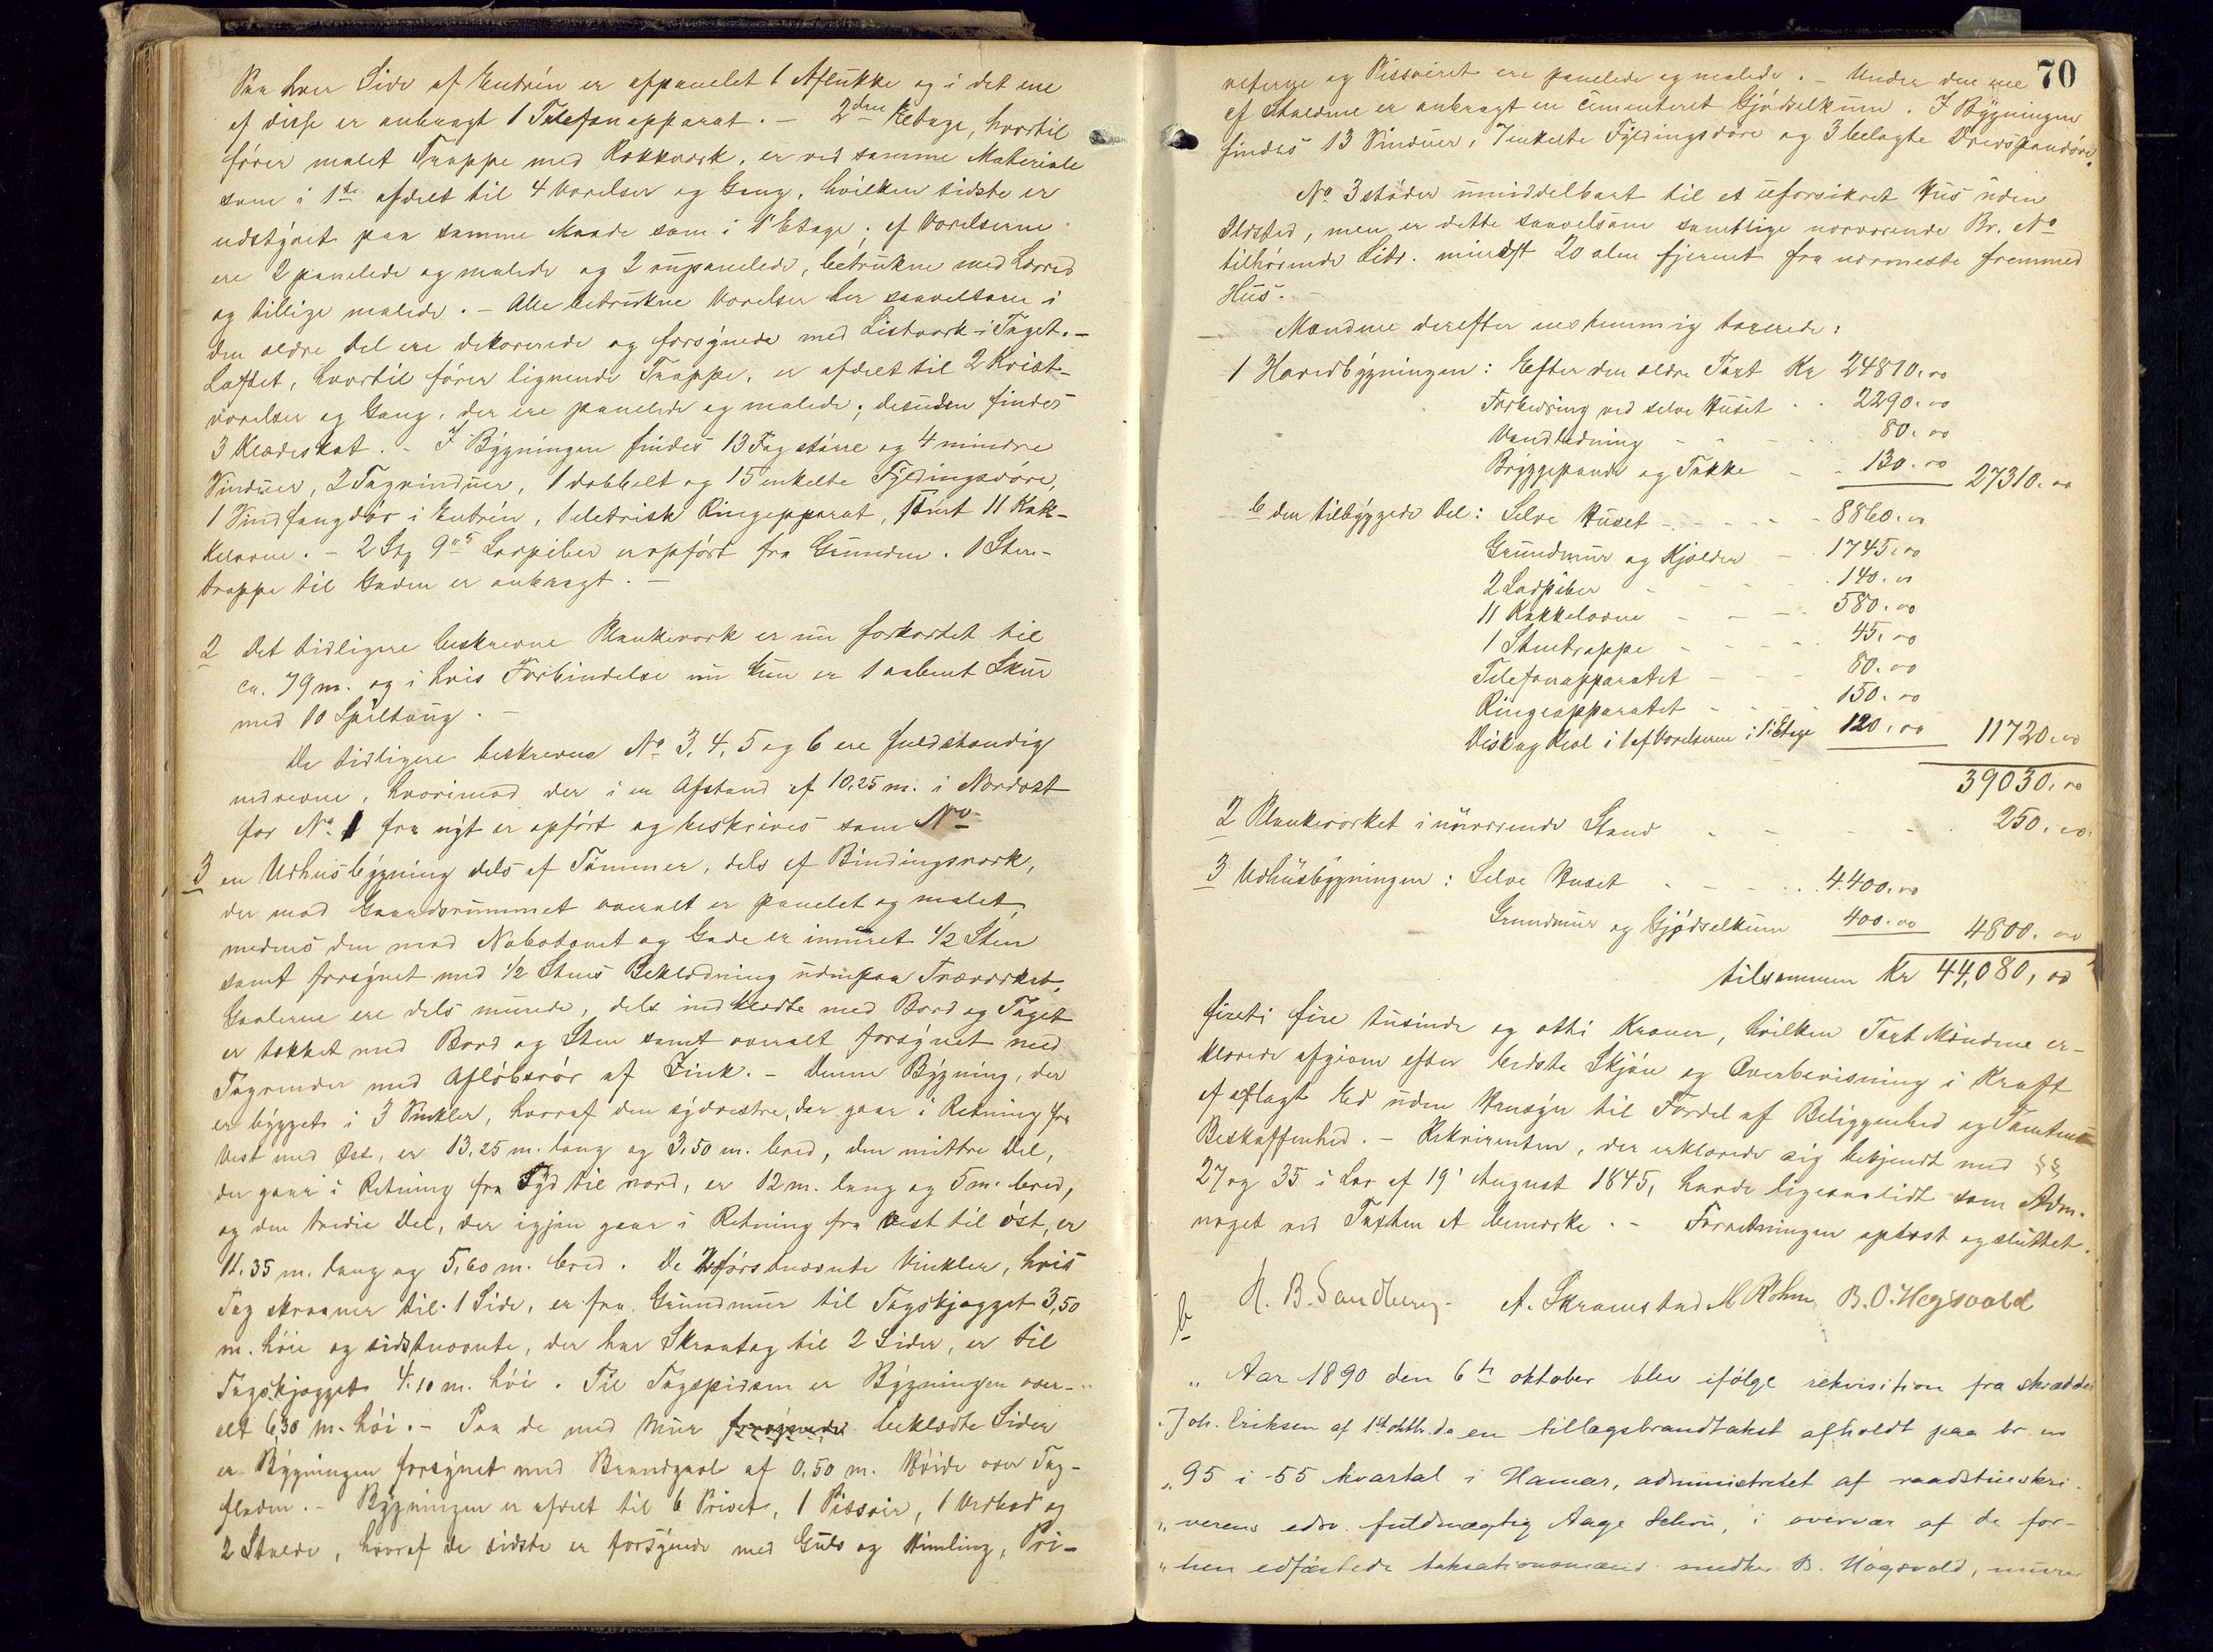 Paa hver Side af Entréen er afpanelet 1 Aflukke og i det ene
af disse er anbragt 1 Telefonapparat. – 2den Etage, hvortil
fører malet Trappe med Rækkværk, er ved samme Materiale
som i 1ste afdelt til 4 Værelser og Gang, hvilken sidste er
udstyret paa samme Maade som i 1' Etage; af Værelserne
ere 2 panelede og malede og 2 upanelede, betrukne med Lærred
og tillige malede. – Alle betrukne Værelser her saavelsom i
den ældre Del ere dekorerede og forsynede med Listværk i Taget. –
Loftet, hvortil fører lignende Trappe, er afdelt til 2 Kvist-
værelser og Gang, der ere panelede og malede; desuden findes
3 Klædeskot. – I Bygningen findes 13 Fag større og 4 mindre
Vinduer, 2 Tagvinduer, 1 dobbelt og 15 enkelte Fyldingsdøre,
1 Vindfangdør i Entréen, 1 eletrisk Ringeapparat, samt 11 Kak-
kelovne. – 2 Stg 9"s Løspiber er opført fra Grunden. 1 Sten-
trappe til Gaden er anbragt. –
2 Det tidligere beskrevne Plankeværk er nu forkortet til
ca. 79 m. og i hvis Forbindelse nu kun er 1 aabent Skur
med 10 Spiltaug. –
De tidligere beskrevne No 3, 4, 5 og 6 ere fuldstændig
nedrevne, hvorimod der i en Afstand af 10,25 m. i Nordost
for No 1 fra nyt er opført og beskrives som No
3 en Udhusbygning dels af Tømmer, dels af Bindingsværk,
der mod Gaardsrummet overalt er panelet og malet,
medens den mod Nabotomt og Gade er inmuret 1/2 Sten
samt forsynet med 1/2 Stens Beklædning udenpaa Træværket.
Gavlerne ere dels murede, dels indklædte med Bord og Taget
er tækket med Bord og Sten samt overalt forsynet med
Tagrender med Afløbsrør af Zink. – Denne Bygning, der
er bygget i 3 Vinkler, hvoraf den sydvestre, der gaar i Retning fra
Vest mod Øst, er 13,25 m. lang og 3,50 m. bred, den mittre Del,
der gaar i Retning fra Syd til nord, er 12 m. lang og 5 m. bred,
og den tredie Del, der igjen gaar i Retning fra vest til øst, er
11.35 m. lang og 5,60 m. bred. De 2 førstnævnte Vinkler, hvis
Tag skraaner til 1 Side, er fra Grundmur til Tagskjægget 3,50
m. høie og sidstnævnte, der har Skraatag til 2 Sider, er til
Tagskjægget 4.10 m. høi. Til Tagspidsen er Bygningen over-
alt 6,30 m. høi. – Paa de med Mur forsynede beklædte Sider
er Bygningen forsynet med Brandgavl af 0,50 m. Høide over Tag-
fladen. – Bygningen er afdelt til 6 Privet, 1 Pissoir, 1 Vedbod og
2 Stalde, hvoraf de sidste er forsynede med Gulv og Himling, Pri-
70
veterne og Pissoiret ere panelede og malede. – Under den ene
af Staldene er anbragt en cementeret Gjødselkum. I Bygningen
findes 13 Vinduer, 7 enkelte Fyldingsdøre og 3 belagte Bredspændøre.
No 3 støder umiddelbart til et uforsikret Hus uden
Ildsted, men er dette saavelsom samtlige nærværende Br. No
tilhørende Litr. mindst 20 alen fjernet fra nærmeste fremmed
Hus. –
Mændene derefter enstemmig taxerede:
1 Hovedbygningen: Efter den ældre Taxt Kr 24810,00
Forbedring ved selve Huset . . 2290.00
Vandledning - - - . 80.00
Bryggepande og Takke - - 130.00 27310.00
b den tilbyggede Del: Selve Huset - - - - - 8860.00
Grundmur og Kjælder - . 1745,00
2 Løspiber - - - . 140.00
11 Kakkelovne - - - 580.00
1 Stentrappe - - - 45,00
Telefonapparatet - - - 80.00
Ringeapparatet - - - 150.00
Disk og Reol i 1 af Værelserne i 1' Etage 120,00 11720,00
39030,00
2 Plankeværket i nuværende Stand - - - - . 250,00
3 Udhusbygningen: Selve Huset . - - . . 4.400,00
Grundmur og Gjødselkum 400.00 4800.00
tilsammen Kr 44,080,00
fireti fire tusinde og otti Kroner, hvilken Taxt Mændene er-
klærede afgiven efter bedste Skjøn og Overbevisning i Kraft
af aflagt Ed uden Hensyn til Fordel af Beliggenhed og Tomtens
Beskaffenhed. – Rekvirenten, der erklærede sig bekjendt med §§
27 og 35 i Lov af 19' August 1845, havde ligesaalidt som Adm.
noget ved Taxten at bemærke. – Forretningen oplæst og sluttet.
H. B. Sandberg. A. Skramstad M Rohne B. O. Hegsvold
b
„ Aar 1890 den 6te oktober blev ifølge rekvisition fra skrædder
„ Joh. Eriksen af 1ste oktbr. da en tillægsbrandtakst afholdt paa br. no
„ 95 i 55 kvartal i Hamar, administreret af raadstueskri-
„ verens edsv. fuldmægtig Aage Schou, i overvær af de for-
„ hen edfæstede taksationsmænd snedker B. Høgsvold, murer